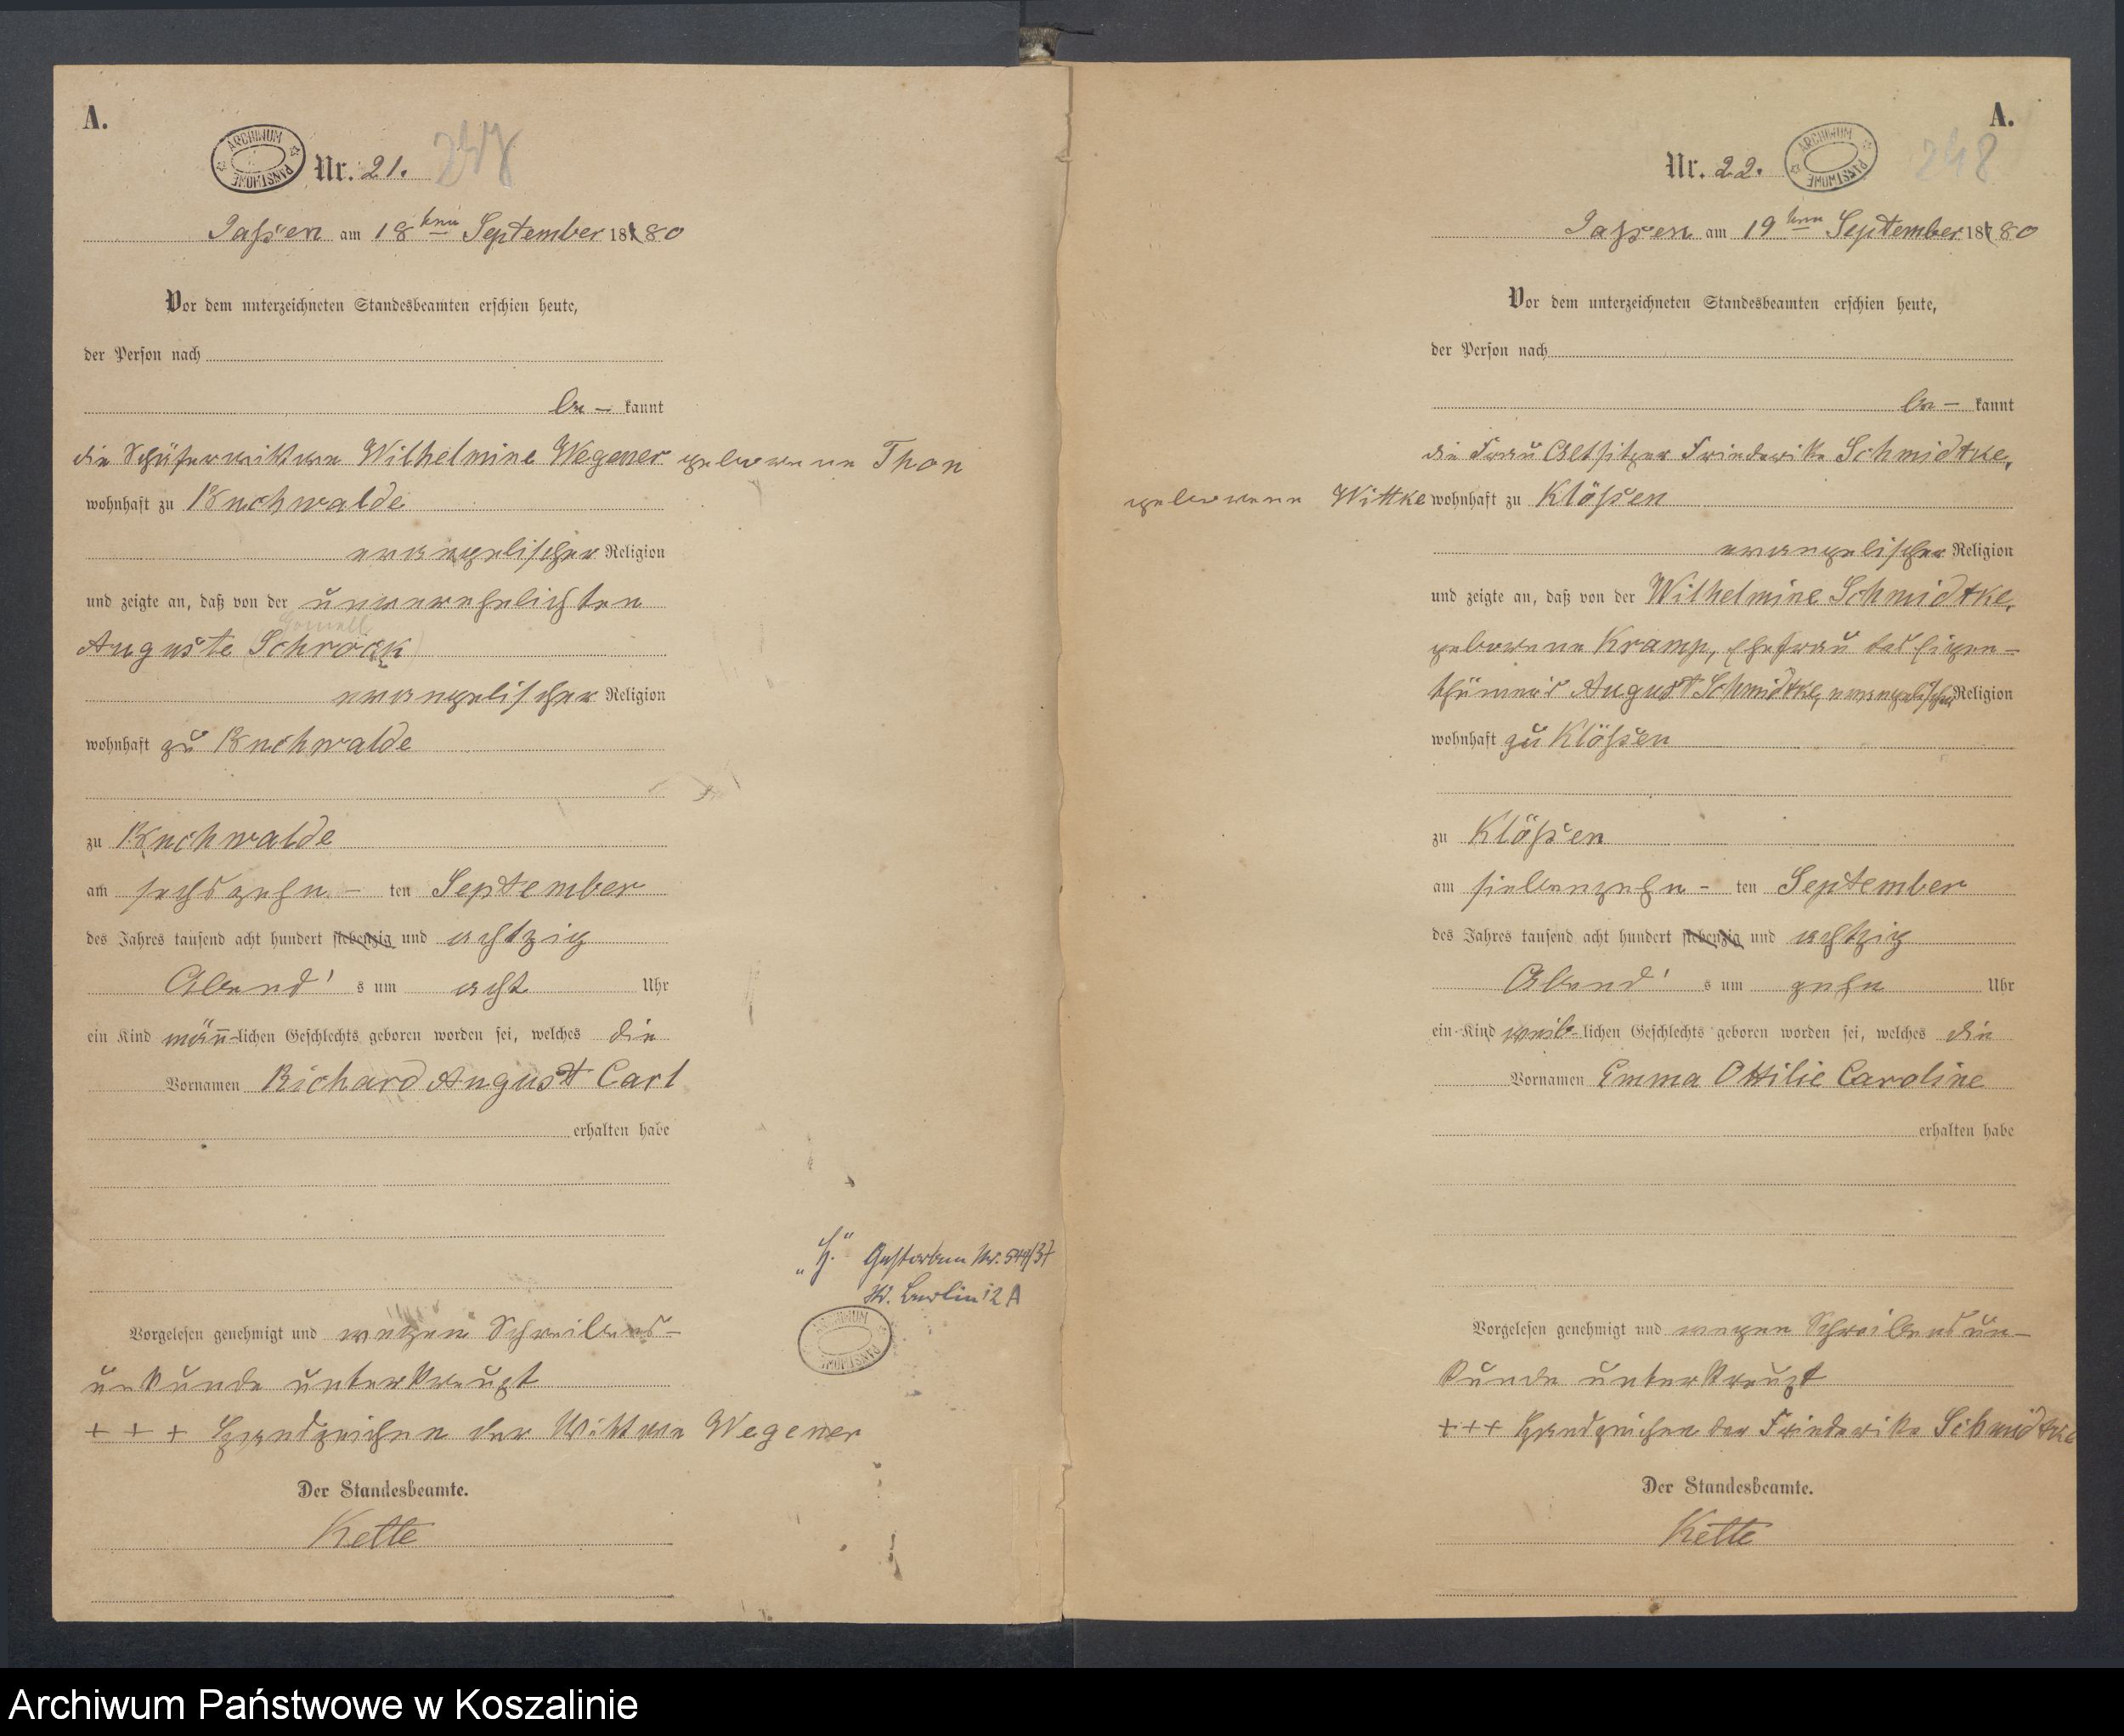 A.
ARCHIWUM PAŃSTWOWE
Nr. 21. 247
Jassen am 18ten September 1880
Vor dem unterzeichneten Standesbeamten erschien heute,
der Person nach
be– kannt
die Schäferwittwe Wilhelmine Wegener geborene Thon
wohnhaft zu Buchwalde
evangelischer Religion
und zeigte an, daß von der unverehelichten
Auguste Schrock
evangelischer Religion
wohnhaft zu Buchwalde
zu Buchwalde
am sechszehn – ten September
des Jahres tausend acht hundert siebenzig und achtzig
Abend's um acht Uhr
ein Kind männ-lichen Geschlechts geboren worden sei, welches die
Vornamen Richard August Carl
erhalten habe
„H." Gestorben Nr. 544/37
St. Berlin 12 A
ARCHIWUM PAŃSTWOWE
Vorgelesen genehmigt und wegen Schreibens–
unkunde unterkreuzt
+ + + Handzeichen der Wittwe Wegener
Der Standesbeamte.
Kette
A.
Nr. 22. ARCHIWUM PAŃSTWOWE 248
Jassen am 19ten September 1880
Vor dem unterzeichneten Standesbeamten erschien heute,
der Person nach
be– kannt
die Frau Altsitzer Friederike Schmidtke,
geborene Wittke wohnhaft zu Klößen
evangelischer Religion
und zeigte an, daß von der Wilhelmine Schmidtke,
geborene Kramp, Ehefrau des Eigen–
thümers August Schmidtke, evangelischer Religion
wohnhaft zu Klößen
zu Klößen
am siebenzehn – ten September
des Jahres tausend acht hundert siebenzig und achtzig
Abend's um zehn Uhr
ein Kind weib-lichen Geschlechts geboren worden sei, welches die
Vornamen Emma Ottilie Caroline
erhalten habe
Vorgelesen genehmigt und wegen Schreibensun–
kunde unterkreuzt
+++ Handzeichen der Friederike Schmidtke
Der Standesbeamte.
Kette
Archiwum Państwowe w Koszalinie